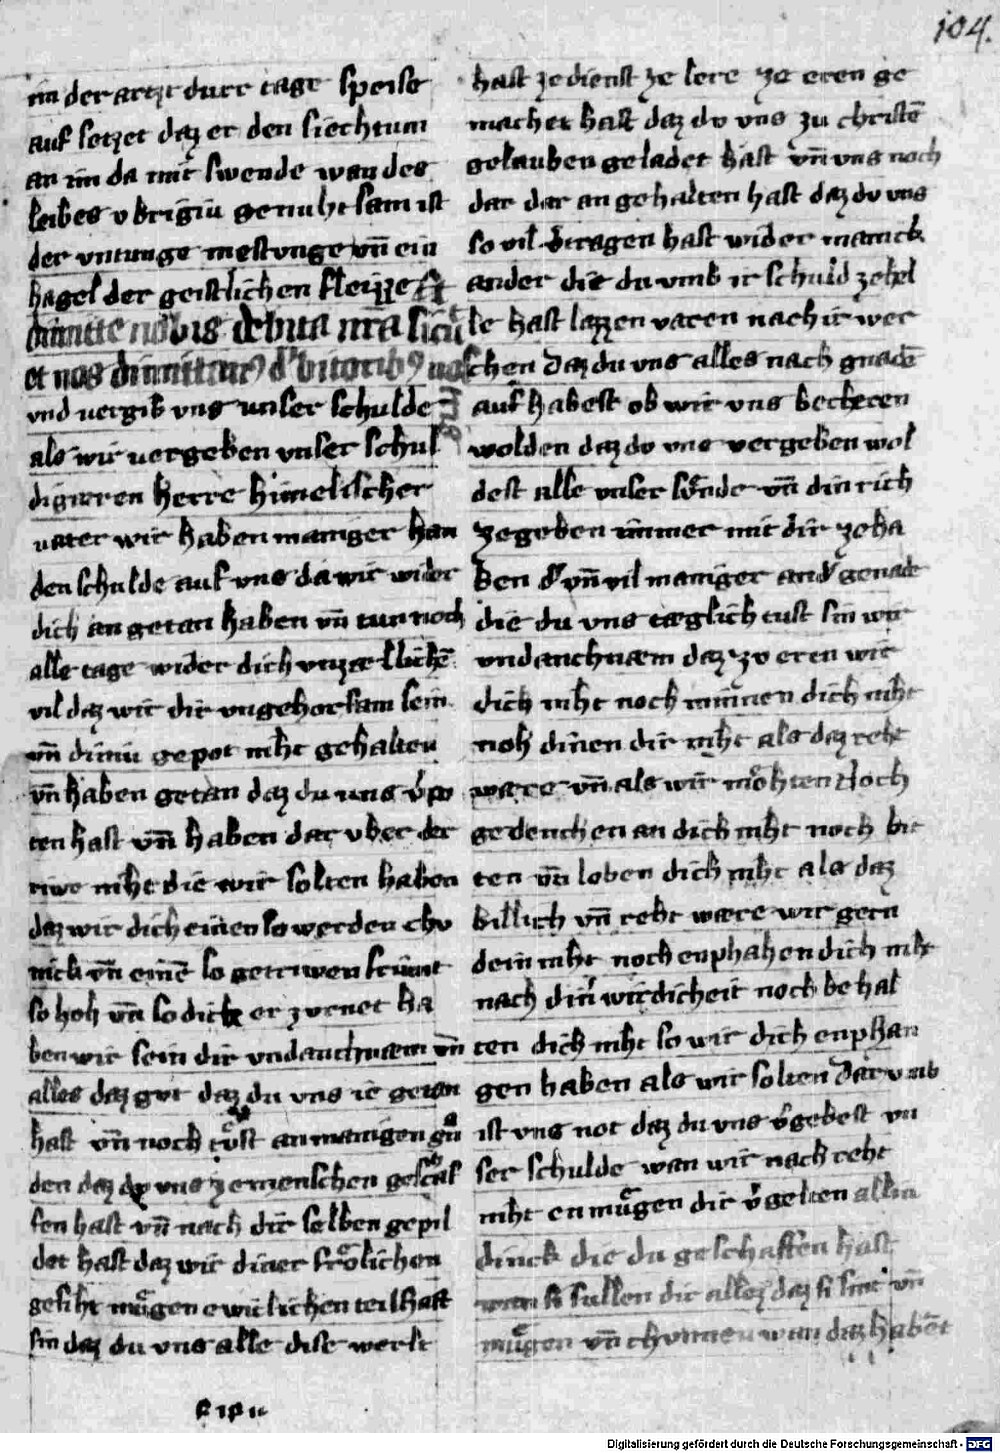 104.
im der artzt durr tage speise
auf setzet daz er den siechtum
an im da mit swende wan des
leibes vbrigiu genuhtsam ist
der vntunge mestunge vn̄ ein
hagel der geistlichen fleizze Et
dimitte nobis debita nr̄a sicut
et nos dimittimꝰ d'bitoribꝰ nos
tris
vnd uergib vns unser schulde
als wir uergeben vnser schul
digæren herre himelischer
uater wir haben maniger han
den schulde auf vns da wir wider
dich an getan haben vn̄ tun noch
alle tage wider dich vnzællichē
vil daz wir dir vngehorsam sein
vn̄ diniu gepot niht gehalten
vn̄ haben getan daz du uns v'po
ten hast vn̄ haben dar vber der
riwe niht die wir solten haben
daz wir dich einen so werden chv
nick vn̄ einē so getriwen friunt
so hoh vn̄ so dicke erzvrnet ha
ben wir sein dir vndanchnæm vn̄
alles daz gvt daz du vns ie getan
hast vn̄ noch tvͦst an manigen gna
den daz du vns ze menschen geschaf
fen hast vn̄ nach dir selben gepil
det hast daz wir diner frölichen
gesiht mügen ewiclichen teilhaft
sin daz du vns alle dise werlt
hast ze dienst ze lere ze eren ge
machet hast daz dv vns zu christē
gelauben geladet hast vn̄ vns noch
dar dar an gehalten hast daz dv vns
so vil v'tragen hast wider manick
ander die du vmb ir schuld ze hel
le hast lazzen varen nach ir wer
chen daz du vns alles nach gnadē
auf habest ob wir vns becheren
wolden daz dv vns vergeben wol
dest alle vnser sünde vn̄ din rich
ze geben immer mit dir ze ha
ben d' vn̄ vil maniger and' genade
die du vns tæglich tust sin wir
vndanchnæm daz zv eren wir
dich niht noch minnen dich niht
noh dinen dir niht als daz reht
wære vn̄ als wir möhten Noch
gedenchen an dich niht noch bit
ten vn̄ loben dich niht als daz
billich vn̄ reht wære wir gern
dein niht noch enphahen dich niht
nach din' wirdicheit noch behal
ten dich niht so wir dich enphan
gen haben als wir solten Dar vmb
ist vns not daz du vns v'gebest vn
ser schulde wan wir nach reht
niht en mügen dir v'gelten alliu
dinck die du geschaffen hast
wan si sullen dir allez daz si sint vn̄
mügen vn̄ chvnnen wan daz habēt
Digitalisierung gefördert durch die Deutsche Forschungsgemeinschaft - DFG